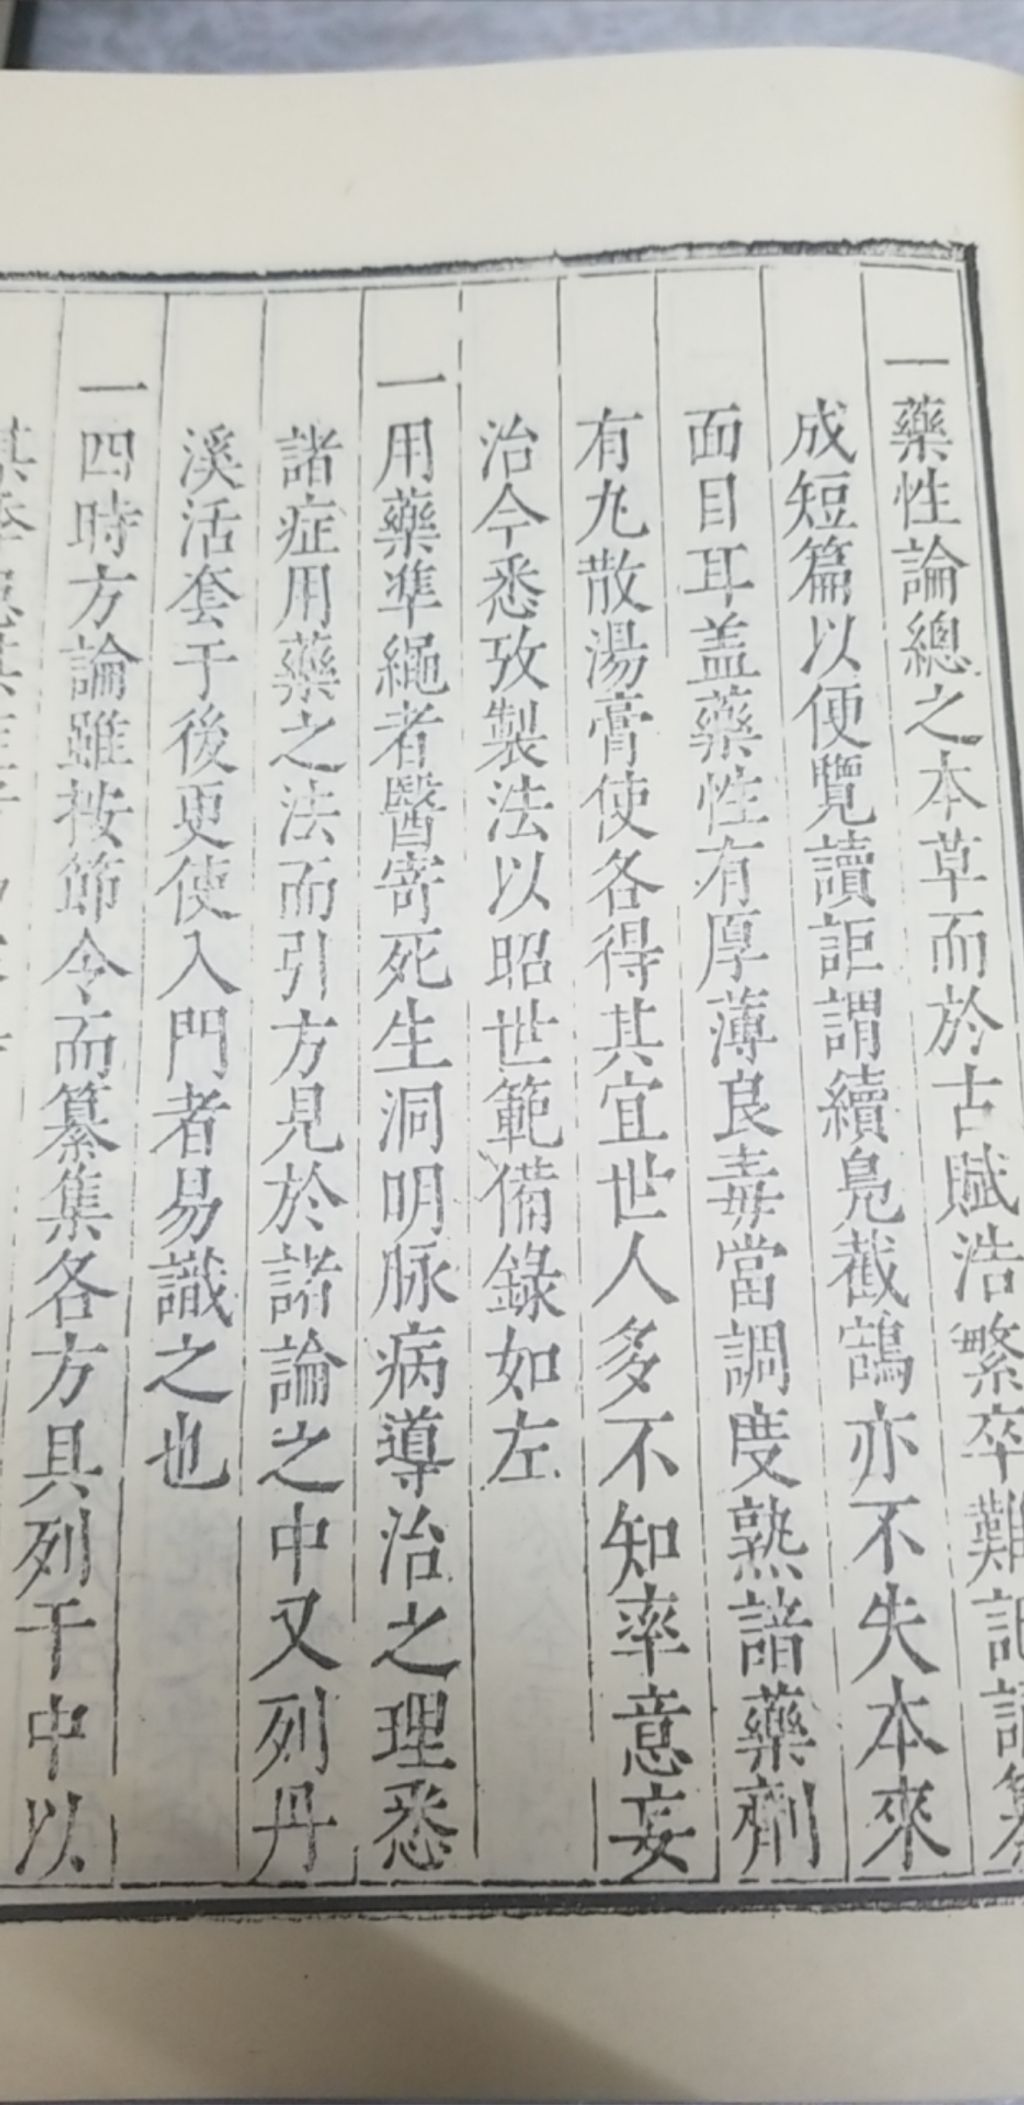 一藥性論總之本草而於古賦浩繁卒難記誦纂
成短篇以便覽讀詎謂續鳧截鶴亦不失本來
面目耳盖藥性有厚薄良毒當調度熟諳藥劑
有丸散湯膏使各得其宜世人多不知率意妄
治今悉攷製法以昭世範備錄如左
一用藥準繩者醫寄死生洞明脉病導治之理悉
諸症用藥之法而引方見於諸論之中又列丹
溪活套于後更使入門者易識之也
一四時方論雖按節令而纂集各方具列于中以